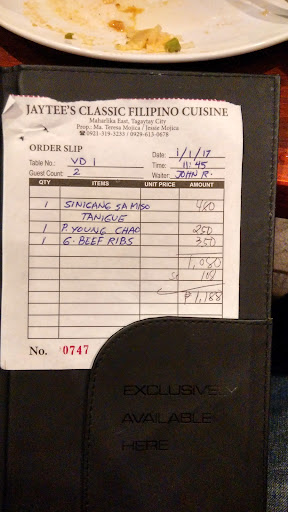 JAYTEE'S CLASSIC FILIPINO CUISINE
Maharlika East, Tagaytay City
Prop. Ma. Teresa Mojica / Jessie Mojica
☎0921-319-3233 / 0929-615-0678
ORDER SLIP
Date: 1/1/17
Table No.: VD 1
Time: 11:45
Guest Count: 2
Waiter: JOHN R.
QTY ITEMS UNIT PRICE AMOUNT
1 SINIGANG SA MISO 480
TANIGUE
1 P. YOUNG CHAO 250
1 G. BEEF RIBS 350
1,080
SC 108
₱1,188
No. 0747
EXCLUSIVELY
AVAILABLE
HERE